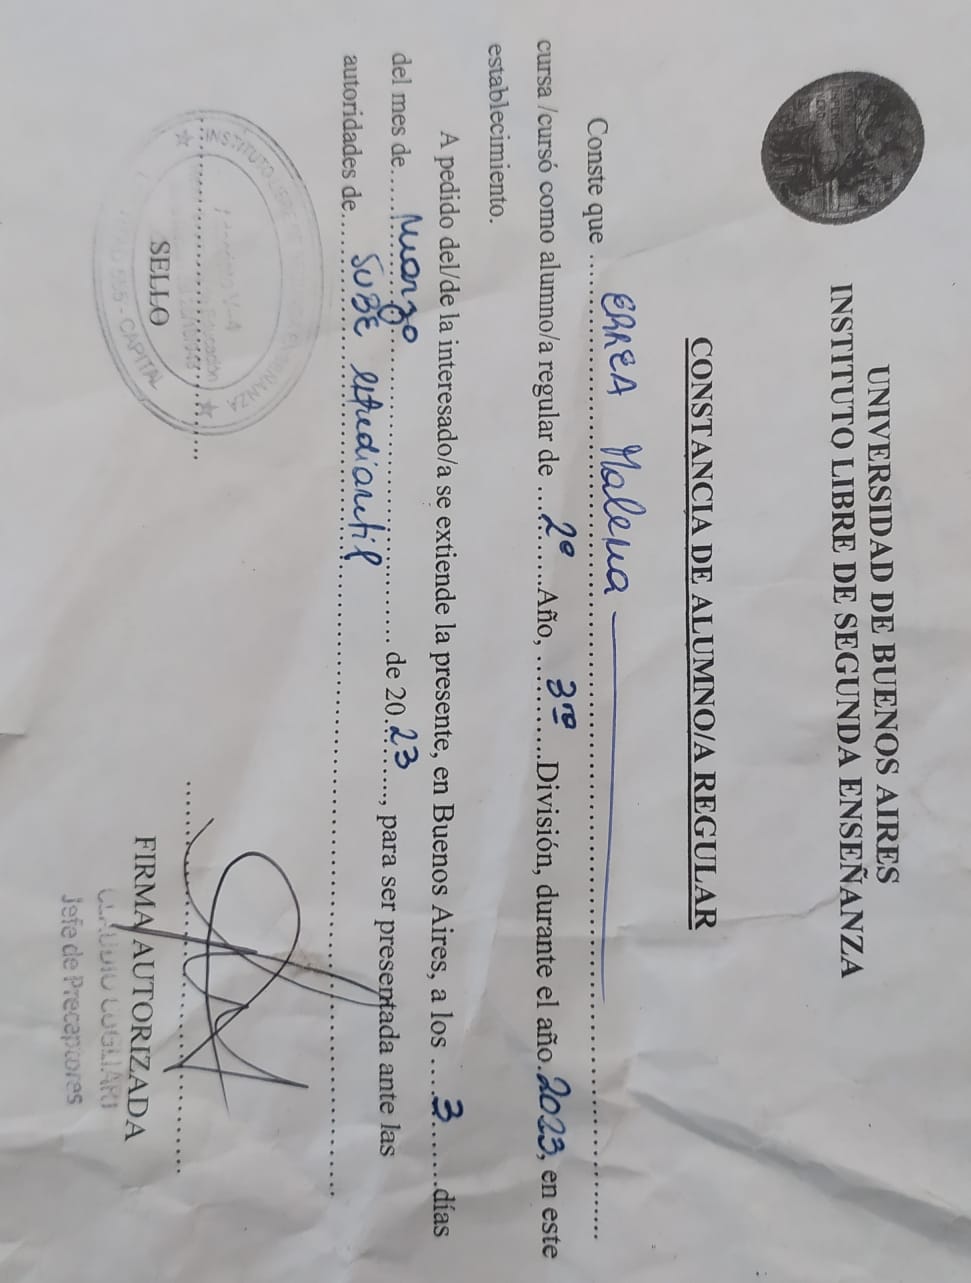 UNIVERSIDAD DE BUENOS AIRES
INSTITUTO LIBRE DE SEGUNDA ENSEÑANZA
CONSTANCIA DE ALUMNO/A REGULAR
Conste que ERREA Malena
cursa /cursó como alumno/a regular de 2º Año, 3ra División, durante el año 2023, en este
establecimiento.
A pedido del/de la interesado/a se extiende la presente, en Buenos Aires, a los 3 días
del mes de marzo de 2023, para ser presentada ante las
autoridades de SUBE estudiantil
INSTITUTO LIBRE DE SEGUNDA ENSEÑANZA
CAPITAL
SELLO
FIRMA AUTORIZADA
CLAUDIO COGLIARI
Jefe de Preceptores